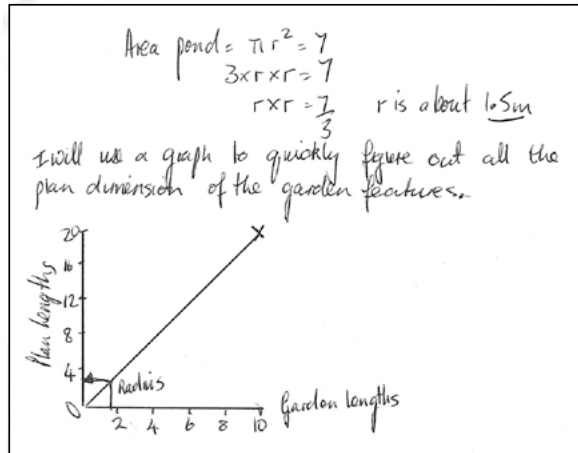 Area pond = πr² = 7
3×r×r = 7
r×r = 7/3 r is about 1.5m
I will use a graph to quickly figure out all the
plan dimension of the garden features.
Plan lengths
20
16
12
8
4
0
Radius
2 4 6 8 10
Garden lengths